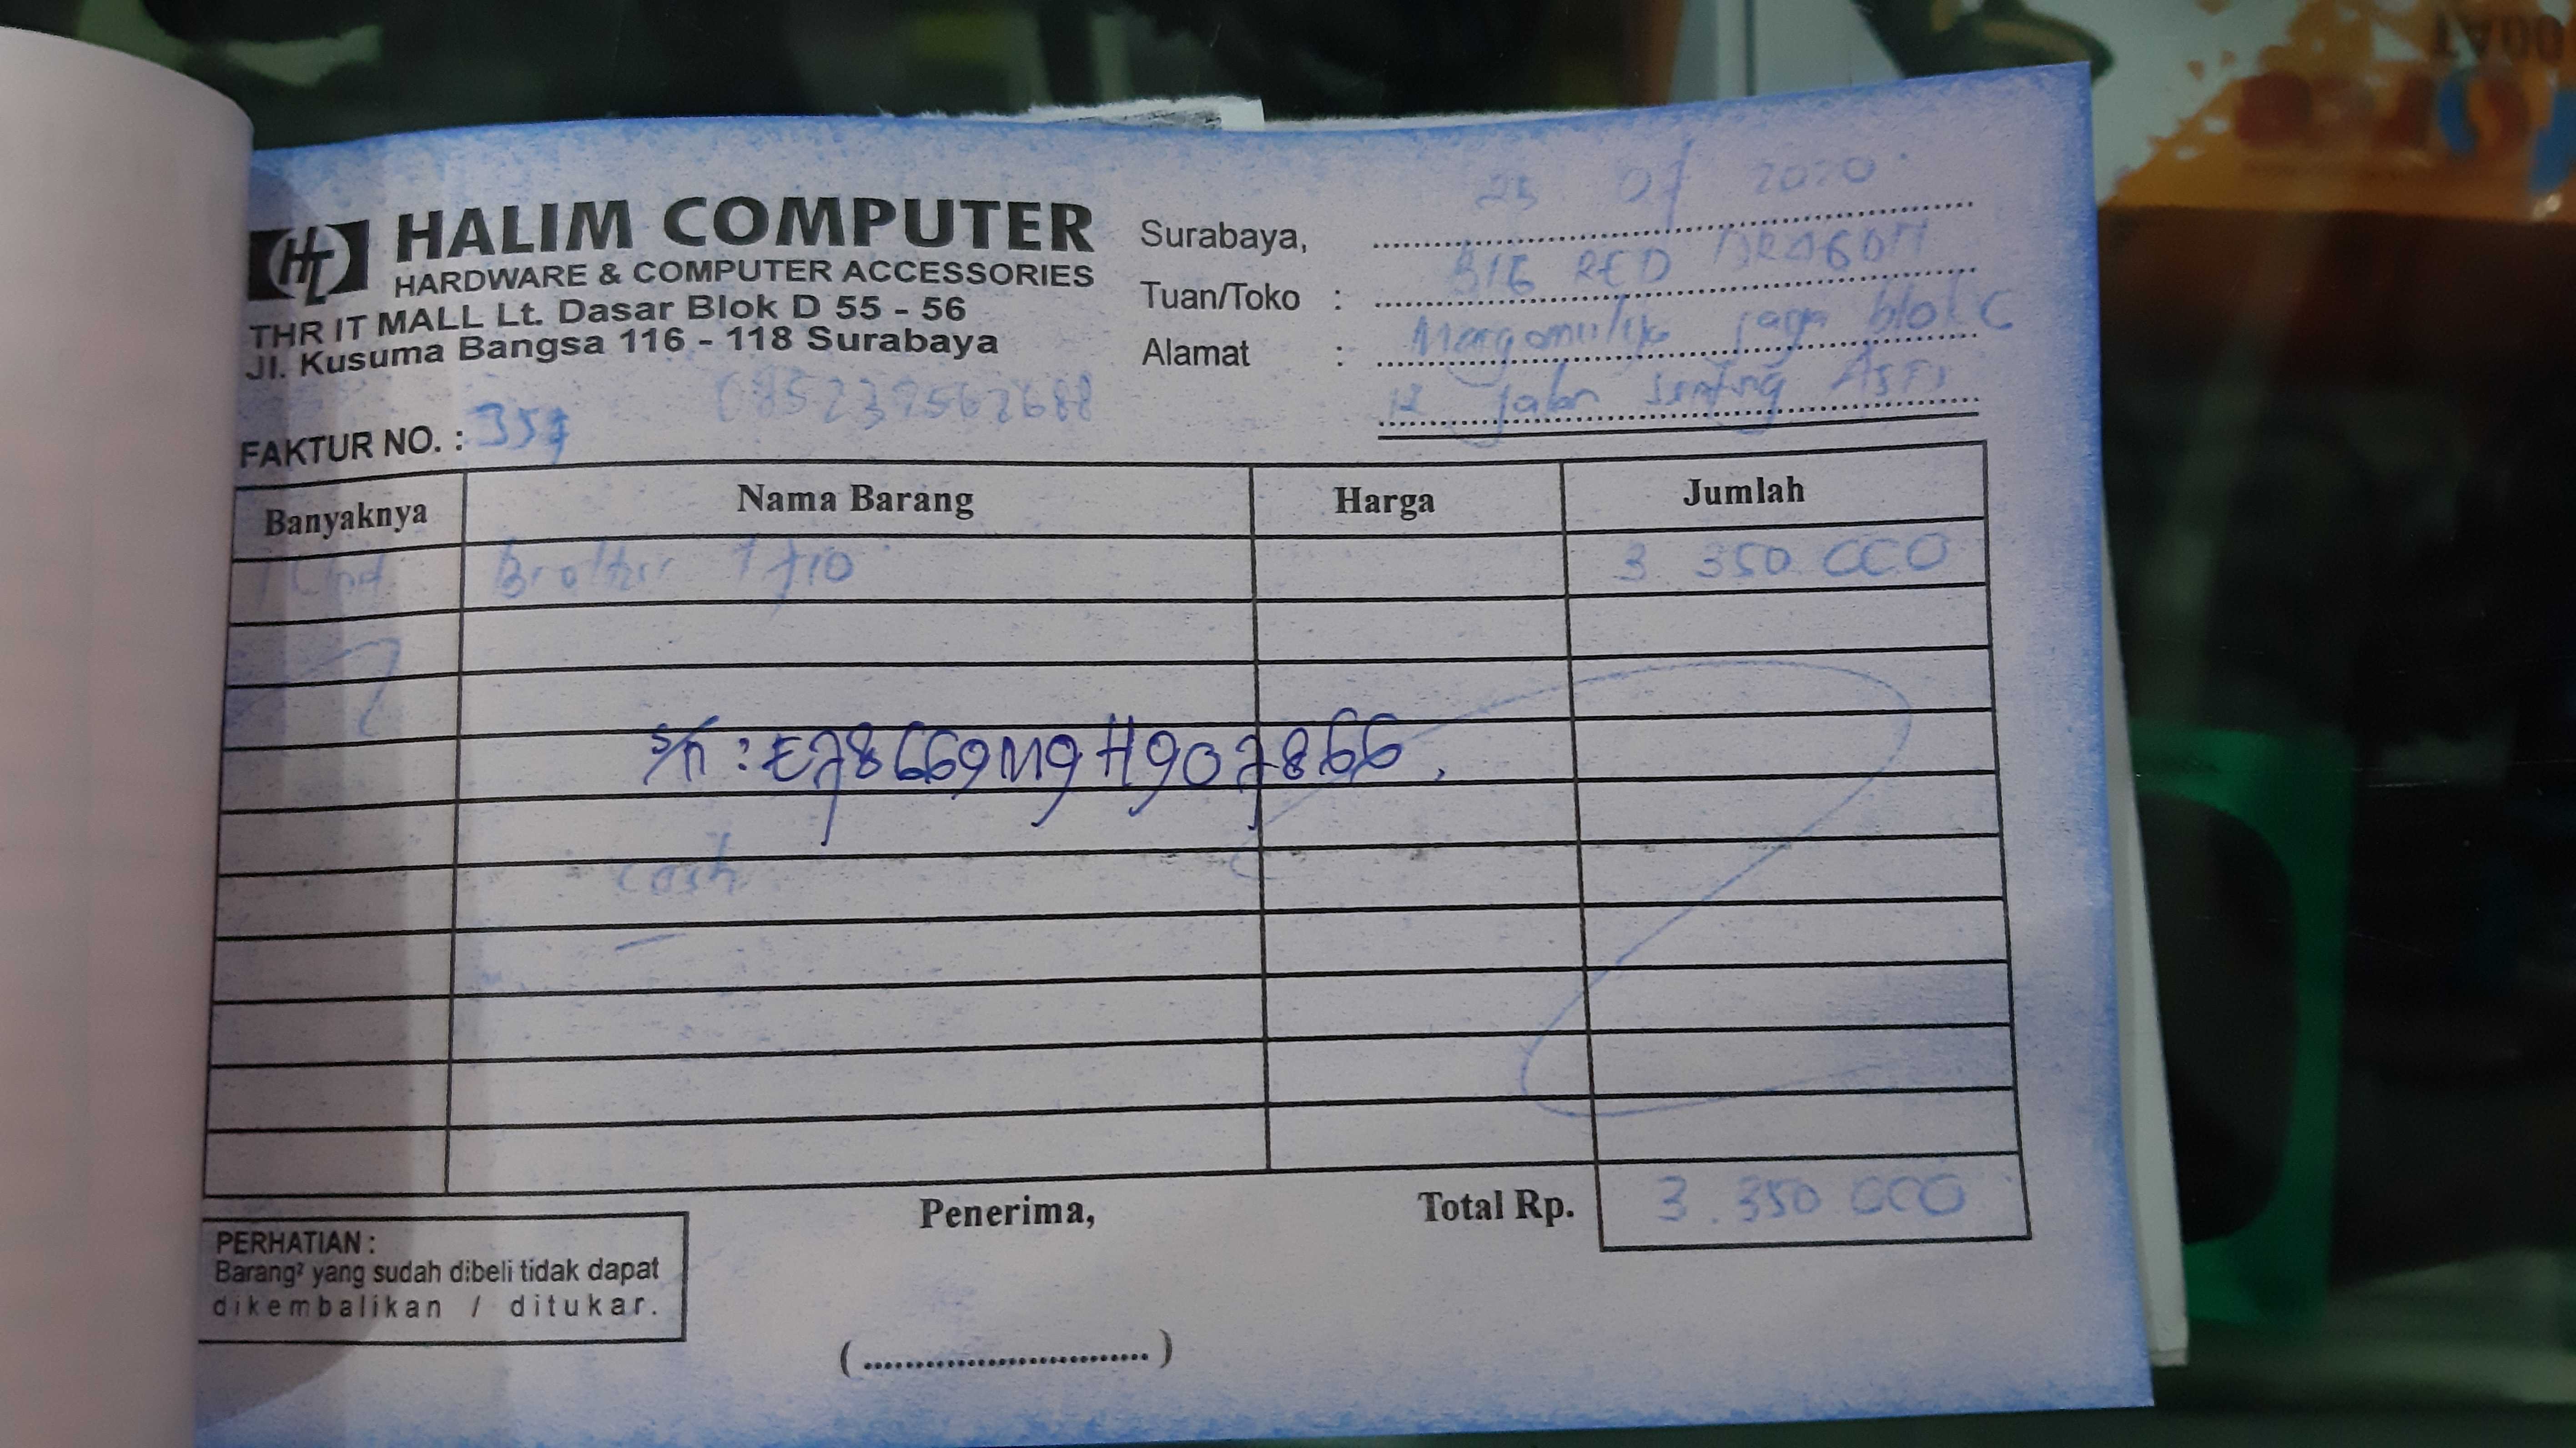 HL HALIM COMPUTER
HARDWARE & COMPUTER ACCESSORIES
THR IT MALL Lt. Dasar Blok D 55 - 56
Jl. Kusuma Bangsa 116 - 118 Surabaya
Surabaya, 25 07 2020
Tuan/Toko : BIG RED DRAGON
Alamat : Margomulyo jaya blok C
12 Jalan Sentong Asri
085232562688
FAKTUR NO. : 357
Banyaknya Nama Barang Harga Jumlah
1 Unit Brother T710 3 350 000
S/n : E78669M9H907866
cash
Penerima,
Total Rp. 3.350 000
PERHATIAN :
Barang² yang sudah dibeli tidak dapat
dikembalikan / ditukar.
(..............................)